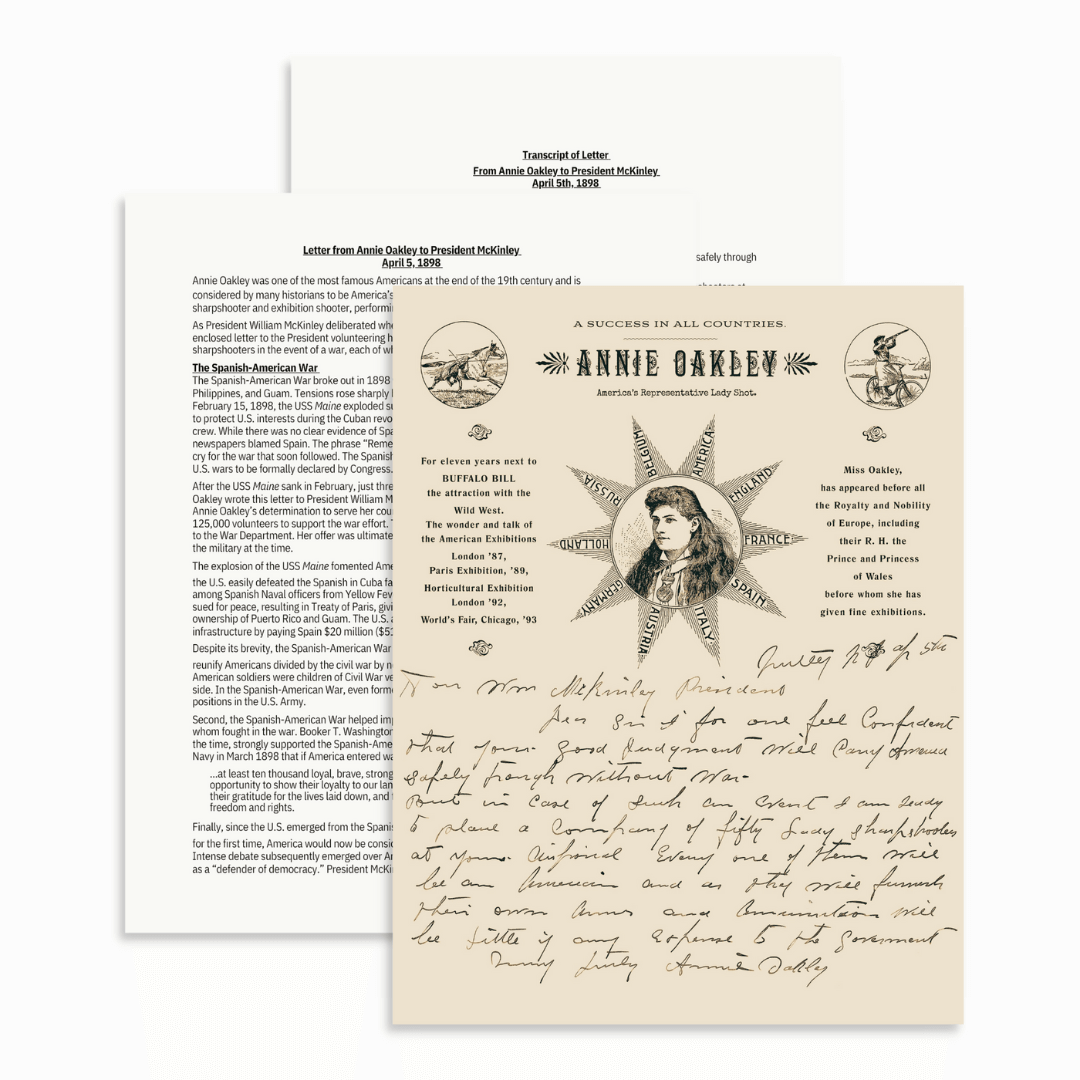 Transcript of Letter
From Annie Oakley to President McKinley
April 5th, 1898
safely through
Letter from Annie Oakley to President McKinley
April 5, 1898
Annie Oakley was one of the most famous Americans at the end of the 19th century and is
considered by many historians to be America's
sharpshooter and exhibition shooter,
As President William McKinley deliberated
enclosed letter to the President volunteering
sharpshooters in the event of a war, each of
The Spanish-American War
The Spanish-American War broke out in 1898
Philippines, and Guam. Tensions rose sharply
February 15, 1898, the USS Maine exploded
to protect U.S. interests during the Cuban
crew. While there was no clear evidence of
newspapers blamed Spain. The phrase
cry for the war that soon followed. The
U.S. wars to be formally declared by Congress.
After the USS Maine sank in February, just
Oakley wrote this letter to President William
Annie Oakley's determination to serve her
125,000 volunteers to support the war effort.
to the War Department. Her offer was
the military at the time.
The explosion of the USS Maine fomented
the U.S. easily defeated the Spanish in Cuba
among Spanish Naval officers from Yellow
sued for peace, resulting in Treaty of Paris,
ownership of Puerto Rico and Guam. The U.S.
infrastructure by paying Spain $20 million
Despite its brevity, the Spanish-American War
reunify Americans divided by the civil war by
American soldiers were children of Civil War
side. In the Spanish-American War, even
positions in the U.S. Army.
Second, the Spanish-American War helped
whom fought in the war. Booker T. Washington
the time, strongly supported the
Navy in March 1898 that if America entered
...at least ten thousand loyal, brave,
opportunity to show their loyalty to our
their gratitude for the lives laid down, and
freedom and rights.
Finally, since the U.S. emerged from the
for the first time, America would now be
Intense debate subsequently emerged over
as a "defender of democracy." President
A SUCCESS IN ALL COUNTRIES.
ANNIE OAKLEY
America's Representative Lady Shot.
For eleven years next to
BUFFALO BILL
the attraction with the
Wild West.
The wonder and talk of
the American Exhibitions
London '87,
Paris Exhibition, '89,
Horticultural Exhibition
London '92,
World's Fair, Chicago, '93
BELGIUM
AMERICA
ENGLAND
FRANCE
SPAIN
ITALY
AUSTRIA
GERMANY
HOLLAND
RUSSIA
Miss Oakley,
has appeared before all
the Royalty and Nobility
of Europe, including
their R. H. the
Prince and Princess
of Wales
before whom she has
given fine exhibitions.
Nutley N J Ap 5th
Hon Wm McKinley President
Dear Sir I for one feel Confident
that your good Judgment will Carry America
safely through without War-
But in Case of Such an Event I am ready
to place a Company of fifty Lady sharpshooters
at your disposal Every one of them will
be an American and as they will furnish
their own Arms and Ammunition will
be little if any Expense to the Government
Very truly Annie Oakley